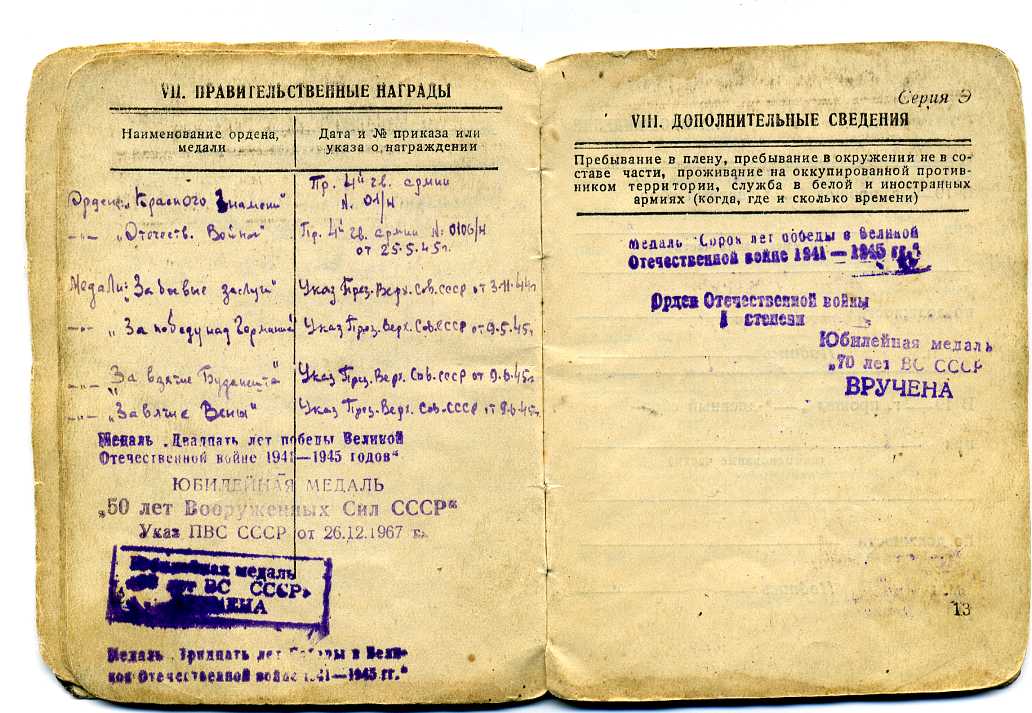 VII. ПРАВИТЕЛЬСТВЕННЫЕ НАГРАДЫ
Наименование ордена, медали
Дата и № приказа или указа о награждении
Орден: „Красного Знамени"
Пр. 4й гв. армии
N. 01/н
-"- „Отечеств. Войны"
Пр. 4й гв. армии N: 0106/н
от 25.5.45г.
Медали: „За боевые заслуги"
Указ През. Верх. Сов. СССР от 3.11.44г.
-"- „За победу над Германией"
Указ През. Верх. Сов. СССР от 9.5.45г.
-"- „За взятие Будапешта"
Указ През. Верх. Сов. СССР от 9.6.45г.
-"- „За взятие Вены"
Указ През. Верх. Сов. СССР от 9.6.45г.
Медаль „Двадцать лет победы Великой
Отечественной войне 1941—1945 годов"
ЮБИЛЕЙНАЯ МЕДАЛЬ
„50 лет Вооруженных Сил СССР"
Указ ПВС СССР от 26.12.1967 г.
Юбилейная медаль
лет ВС СССР"
Медаль „Тридцать лет Победы в Вели-
кой Отечественной войне 1941—1945 гг."
Серия Э
VIII. ДОПОЛНИТЕЛЬНЫЕ СВЕДЕНИЯ
Пребывание в плену, пребывание в окружении не в со-
ставе части, проживание на оккупированной против-
ником территории, служба в белой и иностранных
армиях (когда, где и сколько времени)
Медаль „Сорок лет победы в Великой
Отечественной войне 1941—1945 гг."
Орден Отечественной войны
I степени
Юбилейная медаль
„70 лет ВС СССР
ВРУЧЕНА
13